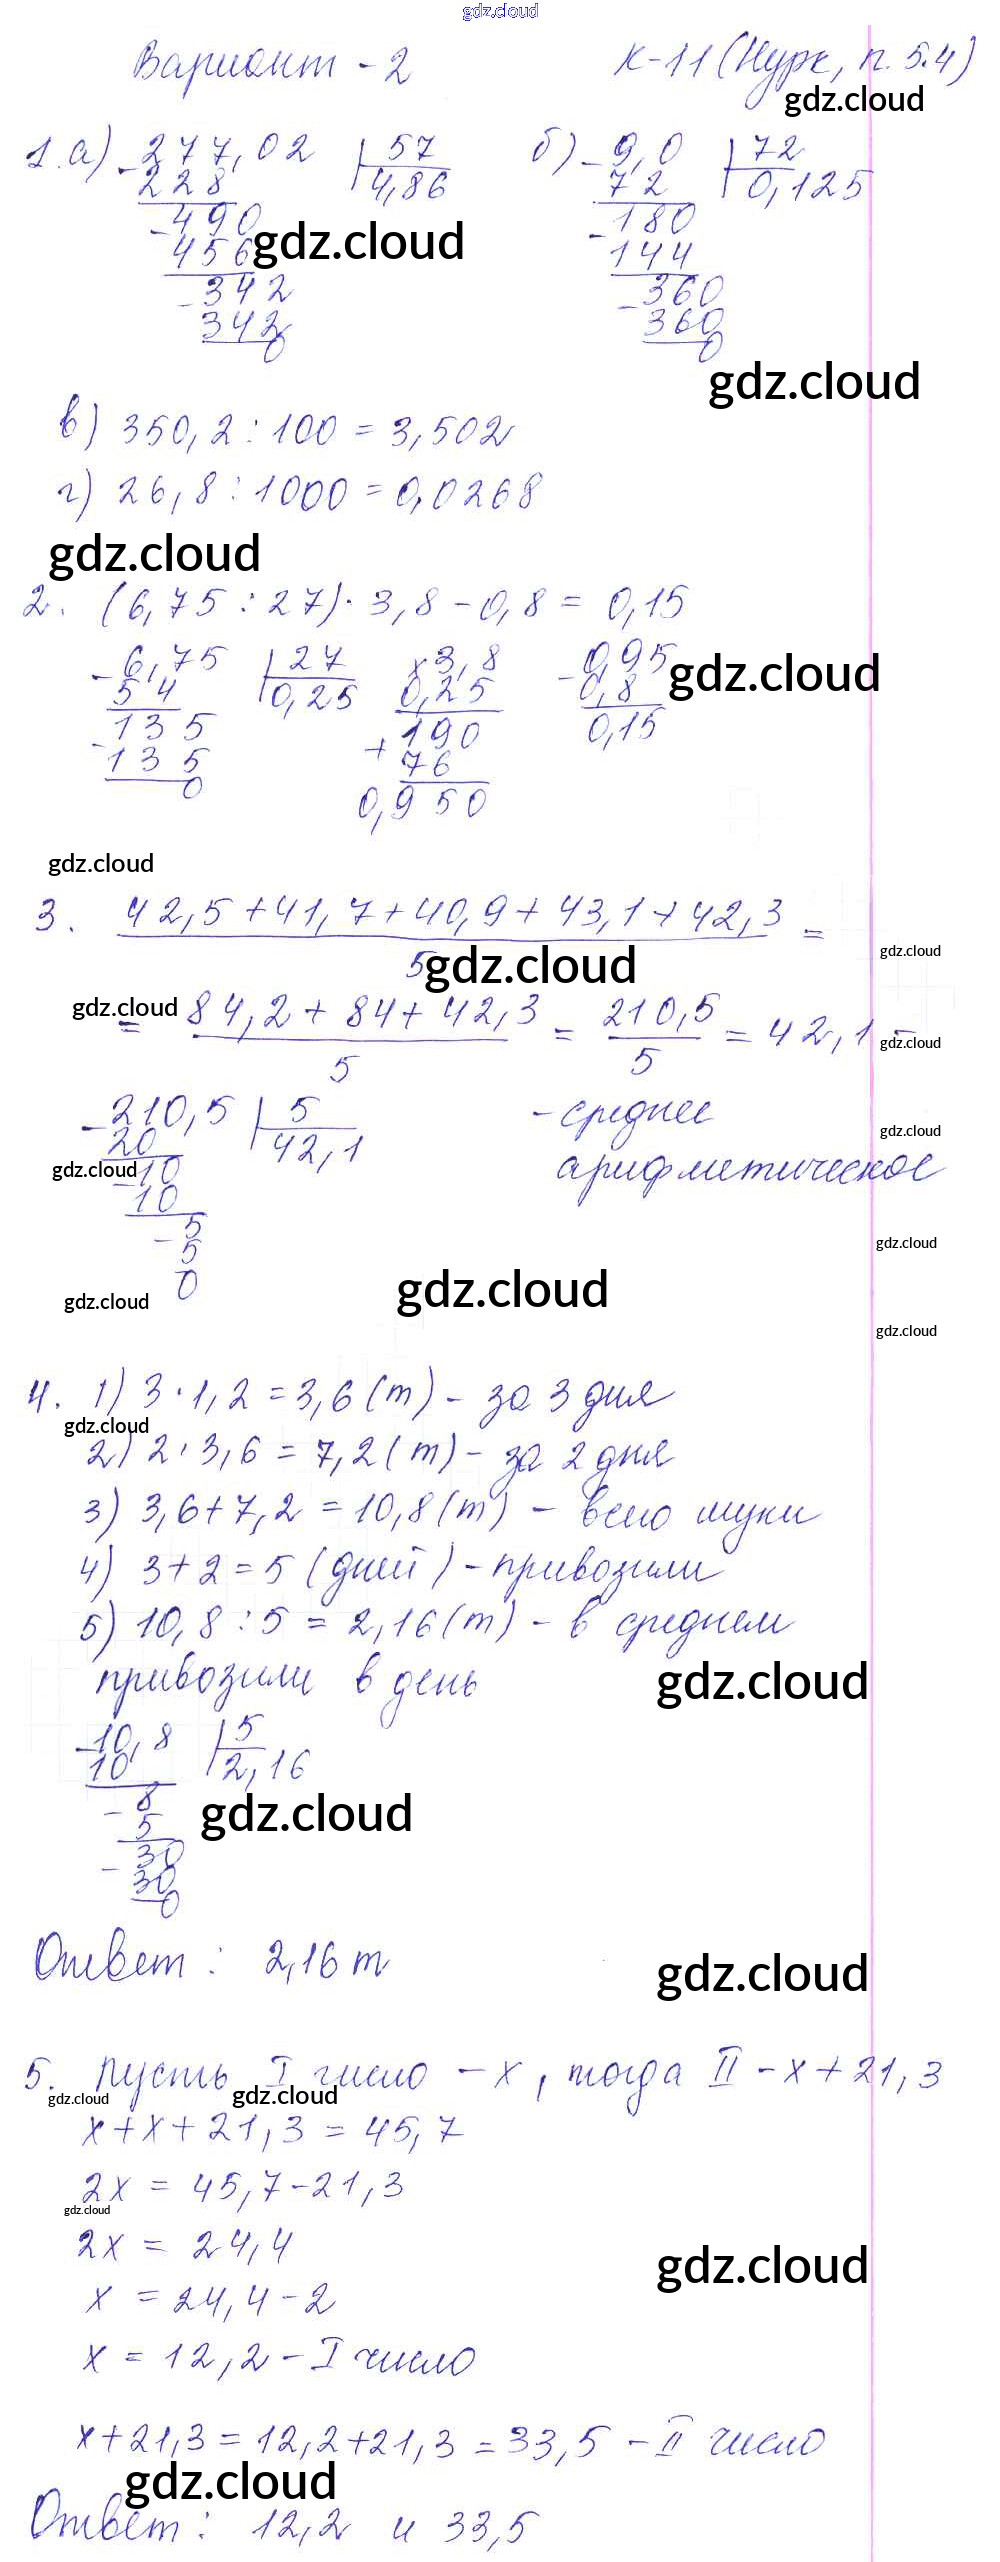 gdz.cloud
Вариант - 2 К-11 (Нурк, п. 5.4)
gdz.cloud
1. а) 277,02 | 57 б) 9,0 | 72
- 228 4,86 - 72 0,125
- 490 - 180
456 144
gdz.cloud
- 342 - 360
342 360
0 0
gdz.cloud
в) 350,2 : 100 = 3,502
г) 26,8 : 1000 = 0,0268
gdz.cloud
2. (6,75 : 27) · 3,8 - 0,8 = 0,15
- 6,75 | 27 × 3,8 - 0,95
gdz.cloud
54 0,25 0,25 0,8
- 135 + 190 0,15
135 76
0 0,950
gdz.cloud
3. 42,5 + 41,7 + 40,9 + 43,1 + 42,3 =
gdz.cloud
5
gdz.cloud
gdz.cloud
= 84,2 + 84 + 42,3 = 210,5 = 42,1 -
gdz.cloud
5 5
- 210,5 | 5 - среднее
gdz.cloud
20 42,1 арифметическое
gdz.cloud
- 10
10
- 5
gdz.cloud
5
0
gdz.cloud
gdz.cloud
gdz.cloud
4. 1) 3 · 1,2 = 3,6 (т) - за 3 дня
gdz.cloud
2) 2 · 3,6 = 7,2 (т) - за 2 дня
3) 3,6 + 7,2 = 10,8 (т) - всего муки
4) 3 + 2 = 5 (дней) - привозили
5) 10,8 : 5 = 2,16 (т) - в среднем
привозили в день
gdz.cloud
- 10,8 | 5
10 2,16
- 8
gdz.cloud
5
- 30
30
0
Ответ: 2,16 т
gdz.cloud
5. Пусть I число - x, тогда II - x + 21,3
gdz.cloud
gdz.cloud
x + x + 21,3 = 45,7
2x = 45,7 - 21,3
gdz.cloud
2x = 24,4
gdz.cloud
x = 24,4 - 2
x = 12,2 - I число
x + 21,3 = 12,2 + 21,3 = 33,5 - II число
gdz.cloud
Ответ: 12,2 и 33,5